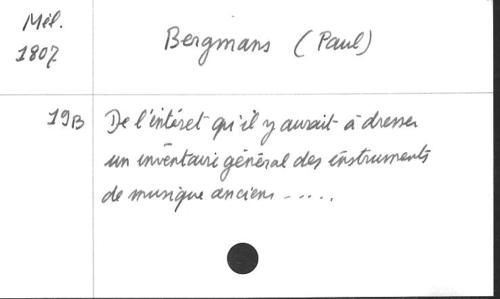 Mél.
1807
Bergmans (Paul)
19B
De l'intéret qu'il y aurait à dresser
un inventaire général des instruments
de musique anciens ......